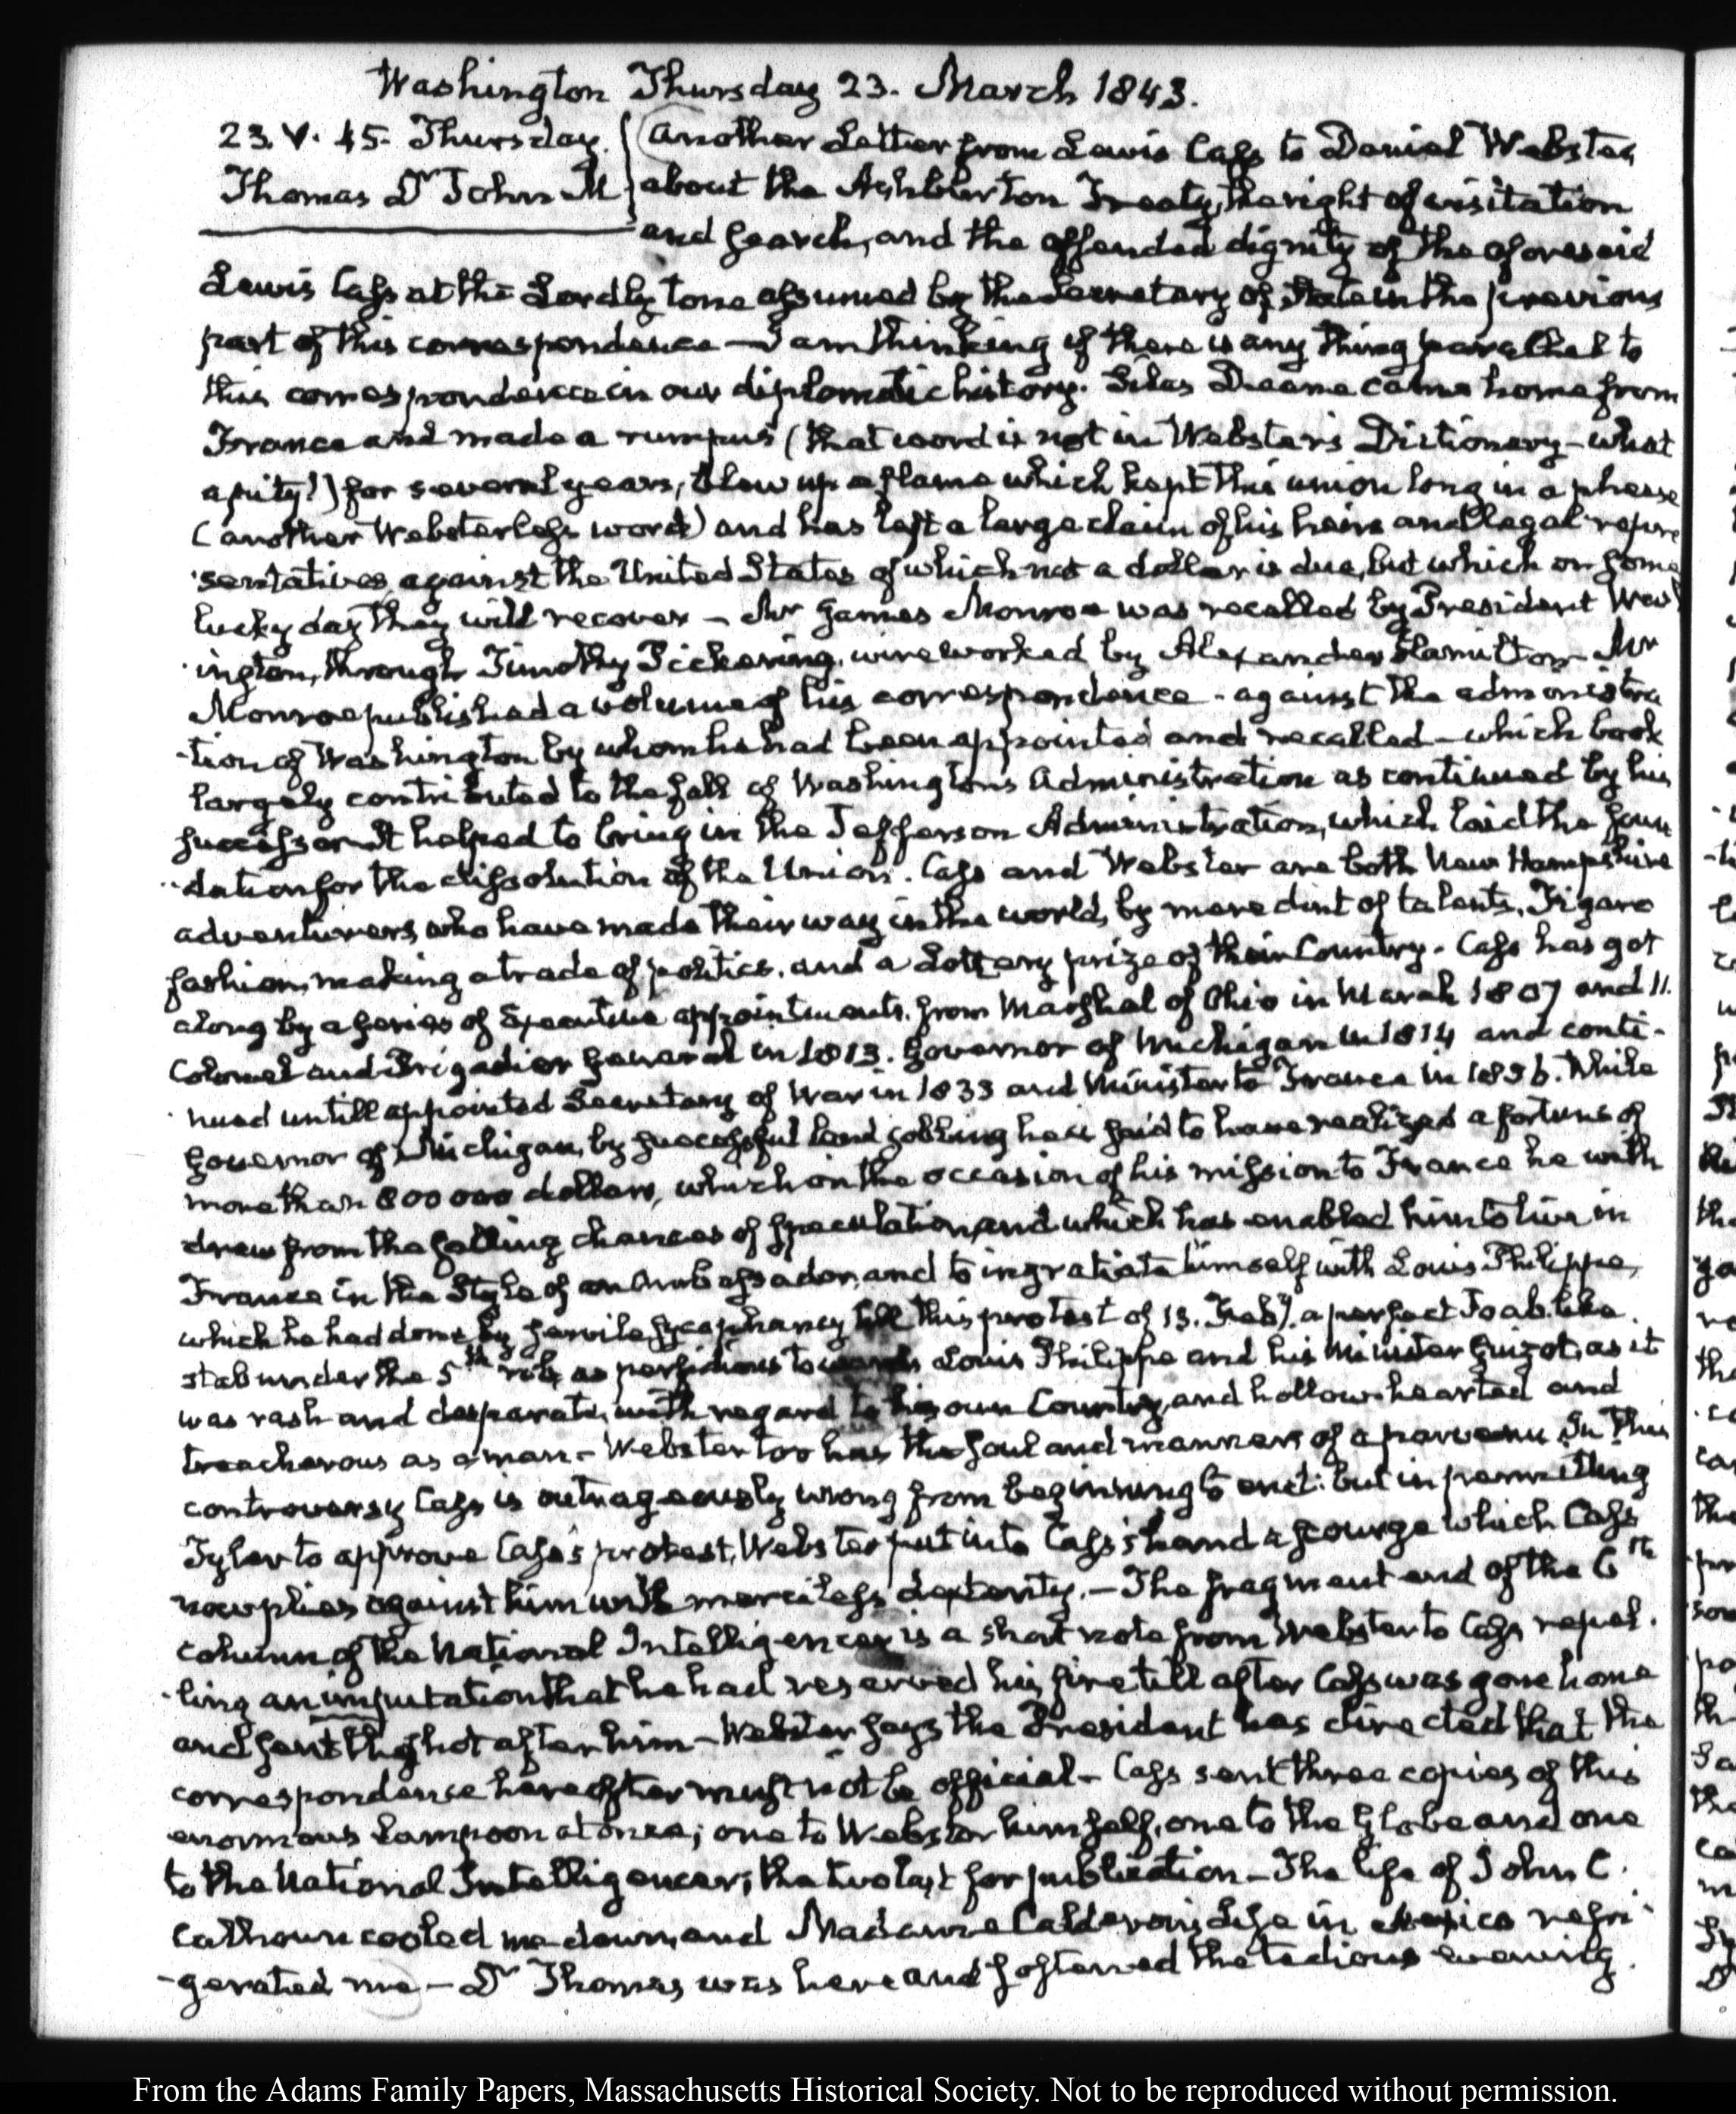 Washington Thursday 23. March 1843.
23. V. 45. Thursday.
Thomas Dr John M
Another Letter from Lewis Cass to Daniel Webster,
about the Ashburton Treaty, the right of visitation
and search, and the offended dignity of the aforesaid
Lewis Cass at the Lordly tone assumed by the Secretary of State in the previous
part of this correspondence — I am thinking if there is any thing parallel to
this correspondence in our diplomatic history. Silas Deane came home from
France and made a rumpus (that word is not in Webster's Dictionary — what
a pity!) for several years, blew up a flame which kept this union long in a pheese
(another Websterless word) and has left a large claim of his heirs and legal repre
-sentatives, against the United States of which not a dollar is due, but which on some
lucky day they will recover — Mr James Monroe was recalled by President Wash
-ington, through Timothy Pickering, wireworked by Alexander Hamilton — Mr
Monroe published a volume of his correspondence - against the administra
-tion of Washington by whom he had been appointed and recalled — which book
largely contributed to the fall of Washington's Administration as continued by his
successor It helped to bring in the Jefferson Administration, which laid the foun
-dation for the dissolution of the Union. Cass and Webster are both New Hampshire
adventurers, who have made their way in the world, by mere dint of talents, Figaro
fashion, making a trade of politics, and a Lottery prize of their Country. Cass has got
along by a series of Executive appointments, from Marshal of Ohio in March 1807 and 11.
Colonel and Brigadier General in 1813. Governor of Michigan in 1814 and conti-
nued untill appointed Secretary of War in 1833 and Minister to France in 1836. While
Governor of Michigan, by successful land jobbing he is said to have realized a fortune of
more than 800 000 dollars, which on the occasion of his mission to France he with
drew from the falling chances of speculation, and which has enabled him to live in
France in the Style of an Ambassador, and to ingratiate himself with Louis Philippe,
which he had done by servile sycophancy till this protest of 13. Feby. a perfect Joab like
stab under the 5th rib, as perfidious towards Louis Philippe and his Minister Guizot, as it
was rash and desperate, with regard to his own Country, and hollow hearted and
treacherous as a man — Webster too has the soul and manners of a parvenu In this
controversy Cass is outrageously wrong from beginning to end: but in permitting
Tyler to approve Cass's protest, Webster put into Cass's hand a scourge which Cass
now plies against him with merciless dexterity. — The fragment end of the 6th
column of the National Intelligencer is a short note from Webster to Cass repel-
-ling an imputation that he had reserved his fire till after Cass was gone home
and sent the shot after him — Webster says the President has directed that the
correspondence hereafter must not be official — Cass sent three copies of this
enormous Lampoon at once; one to Webster himself, one to the Globe and one
to the National Intelligencer; the two last for publication — The life of John C.
Calhoun cooled me down, and Madame Calderon's Life in Mexico refri-
-gerated me — Dr Thomas was here and softened the tedious evening.
From the Adams Family Papers, Massachusetts Historical Society. Not to be reproduced without permission.